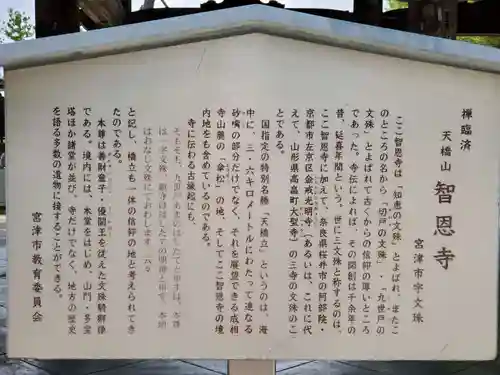 禅臨済
天橋山 智恩寺
宮津市字文珠
ここ智恩寺は「知恵の文殊」とよばれ、またこ
のところの名から「切戸の文殊」・「九世戸の
文殊」とよばれて古くからの信仰の厚いところ
であった。寺伝によれば、その開創は千余年の
昔、延喜年間という。世に三文殊と称するのは、
ここ智恩寺に加えて、奈良県桜井市の阿部院・
京都市左京区金戒光明寺(あるいは、これに代
えて、山形県高畠町大聖寺)の三寺の文殊のこ
とである。
国指定の特別名勝「天橋立」というのは、海
中に、三・六キロメートルにわたって連なる
砂嘴の部分だけでなく、それを展望できる成相
寺山麓の「傘松」の地、そしてここ智恩寺の境
内地をも含めているのである。
寺に伝わる古縁起にも、
そもそも、九世戸あまのはしたてと申すは、本尊
は
はおなし文殊にておわします(ふ々)
と記し、橋立も一体の信仰の地と考えられてき
たのである。
本尊は善財童子・優闐王を従えた文殊騎獅像
である。境内には、本堂をはじめ、山門・多宝
塔ほか諸堂が並び、寺だけでなく、地方の歴史
を語る多数の遺物に接することができる。
宮津市教育委員会